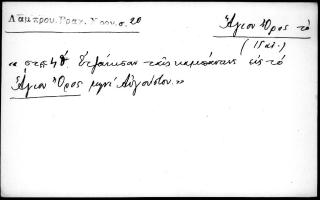 Λάμπρου. Βραχ. Χρον. σ. 20
Ἅγιον Ὄρος τὸ
(Παλ.)
« ἔτει ἐτζάκισαν ταῖς καμπάναις εἰς τὸ
Ἅγιον Ὄρος μηνὶ Αὐγούστου. »